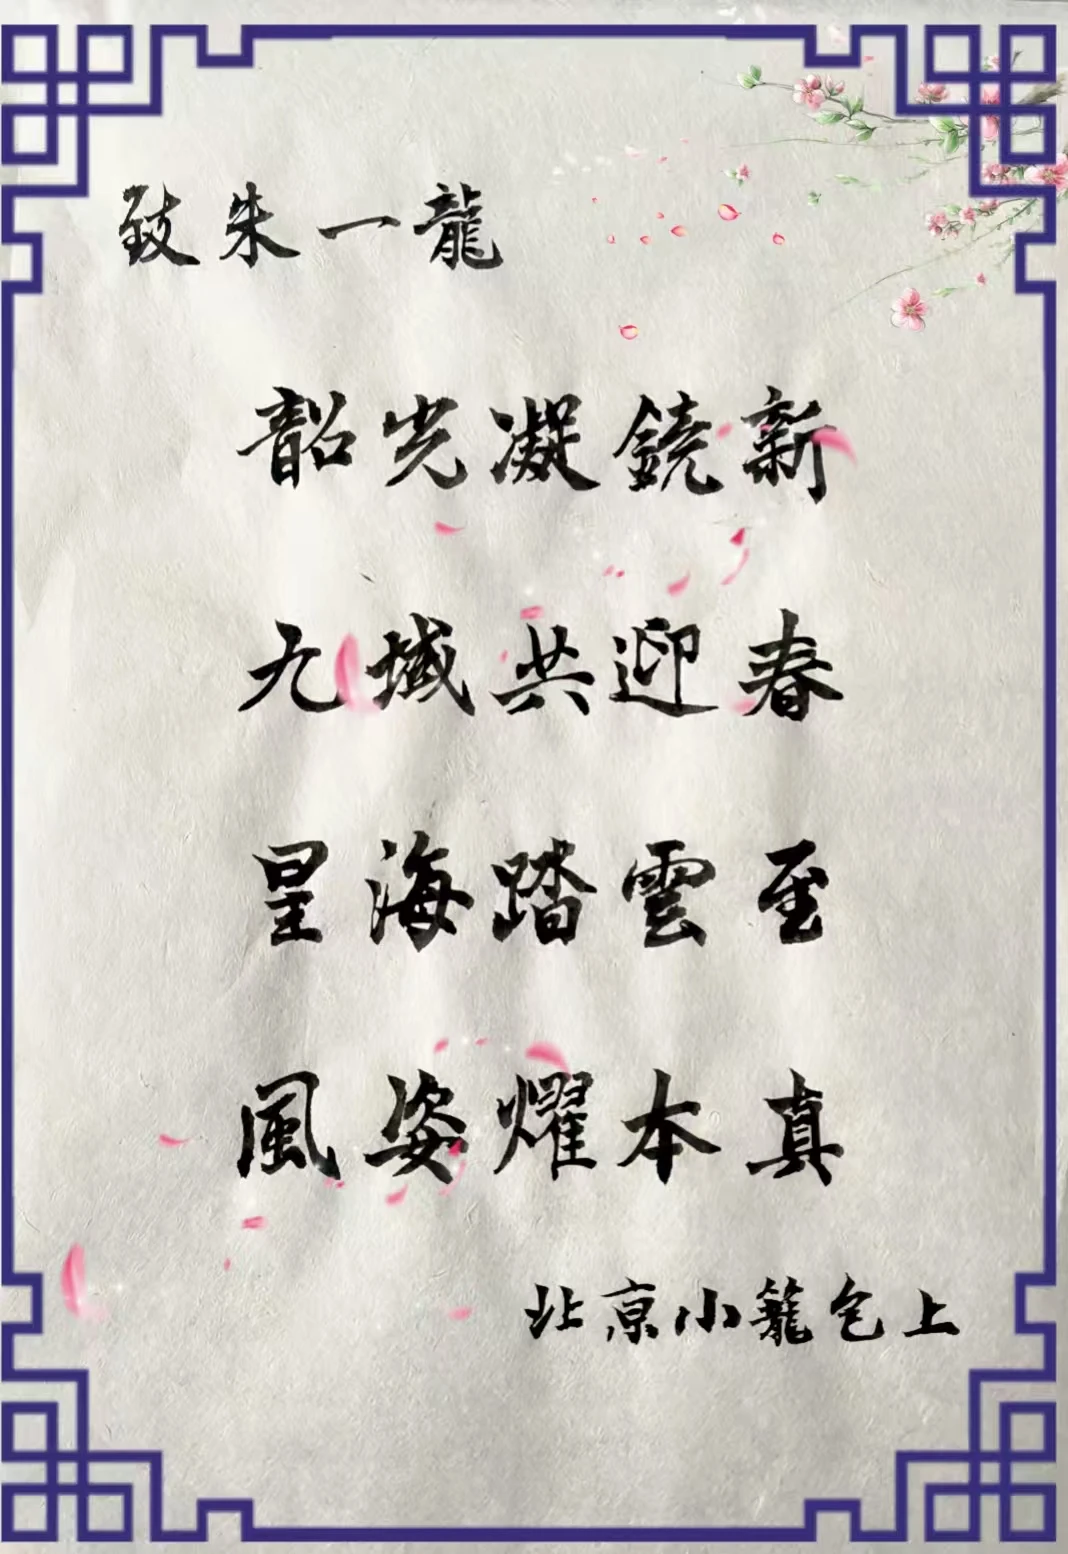 致朱一龍
韶光凝鐃新
九域共迎春
星海踏雲至
風姿耀本真
北京小籠包上